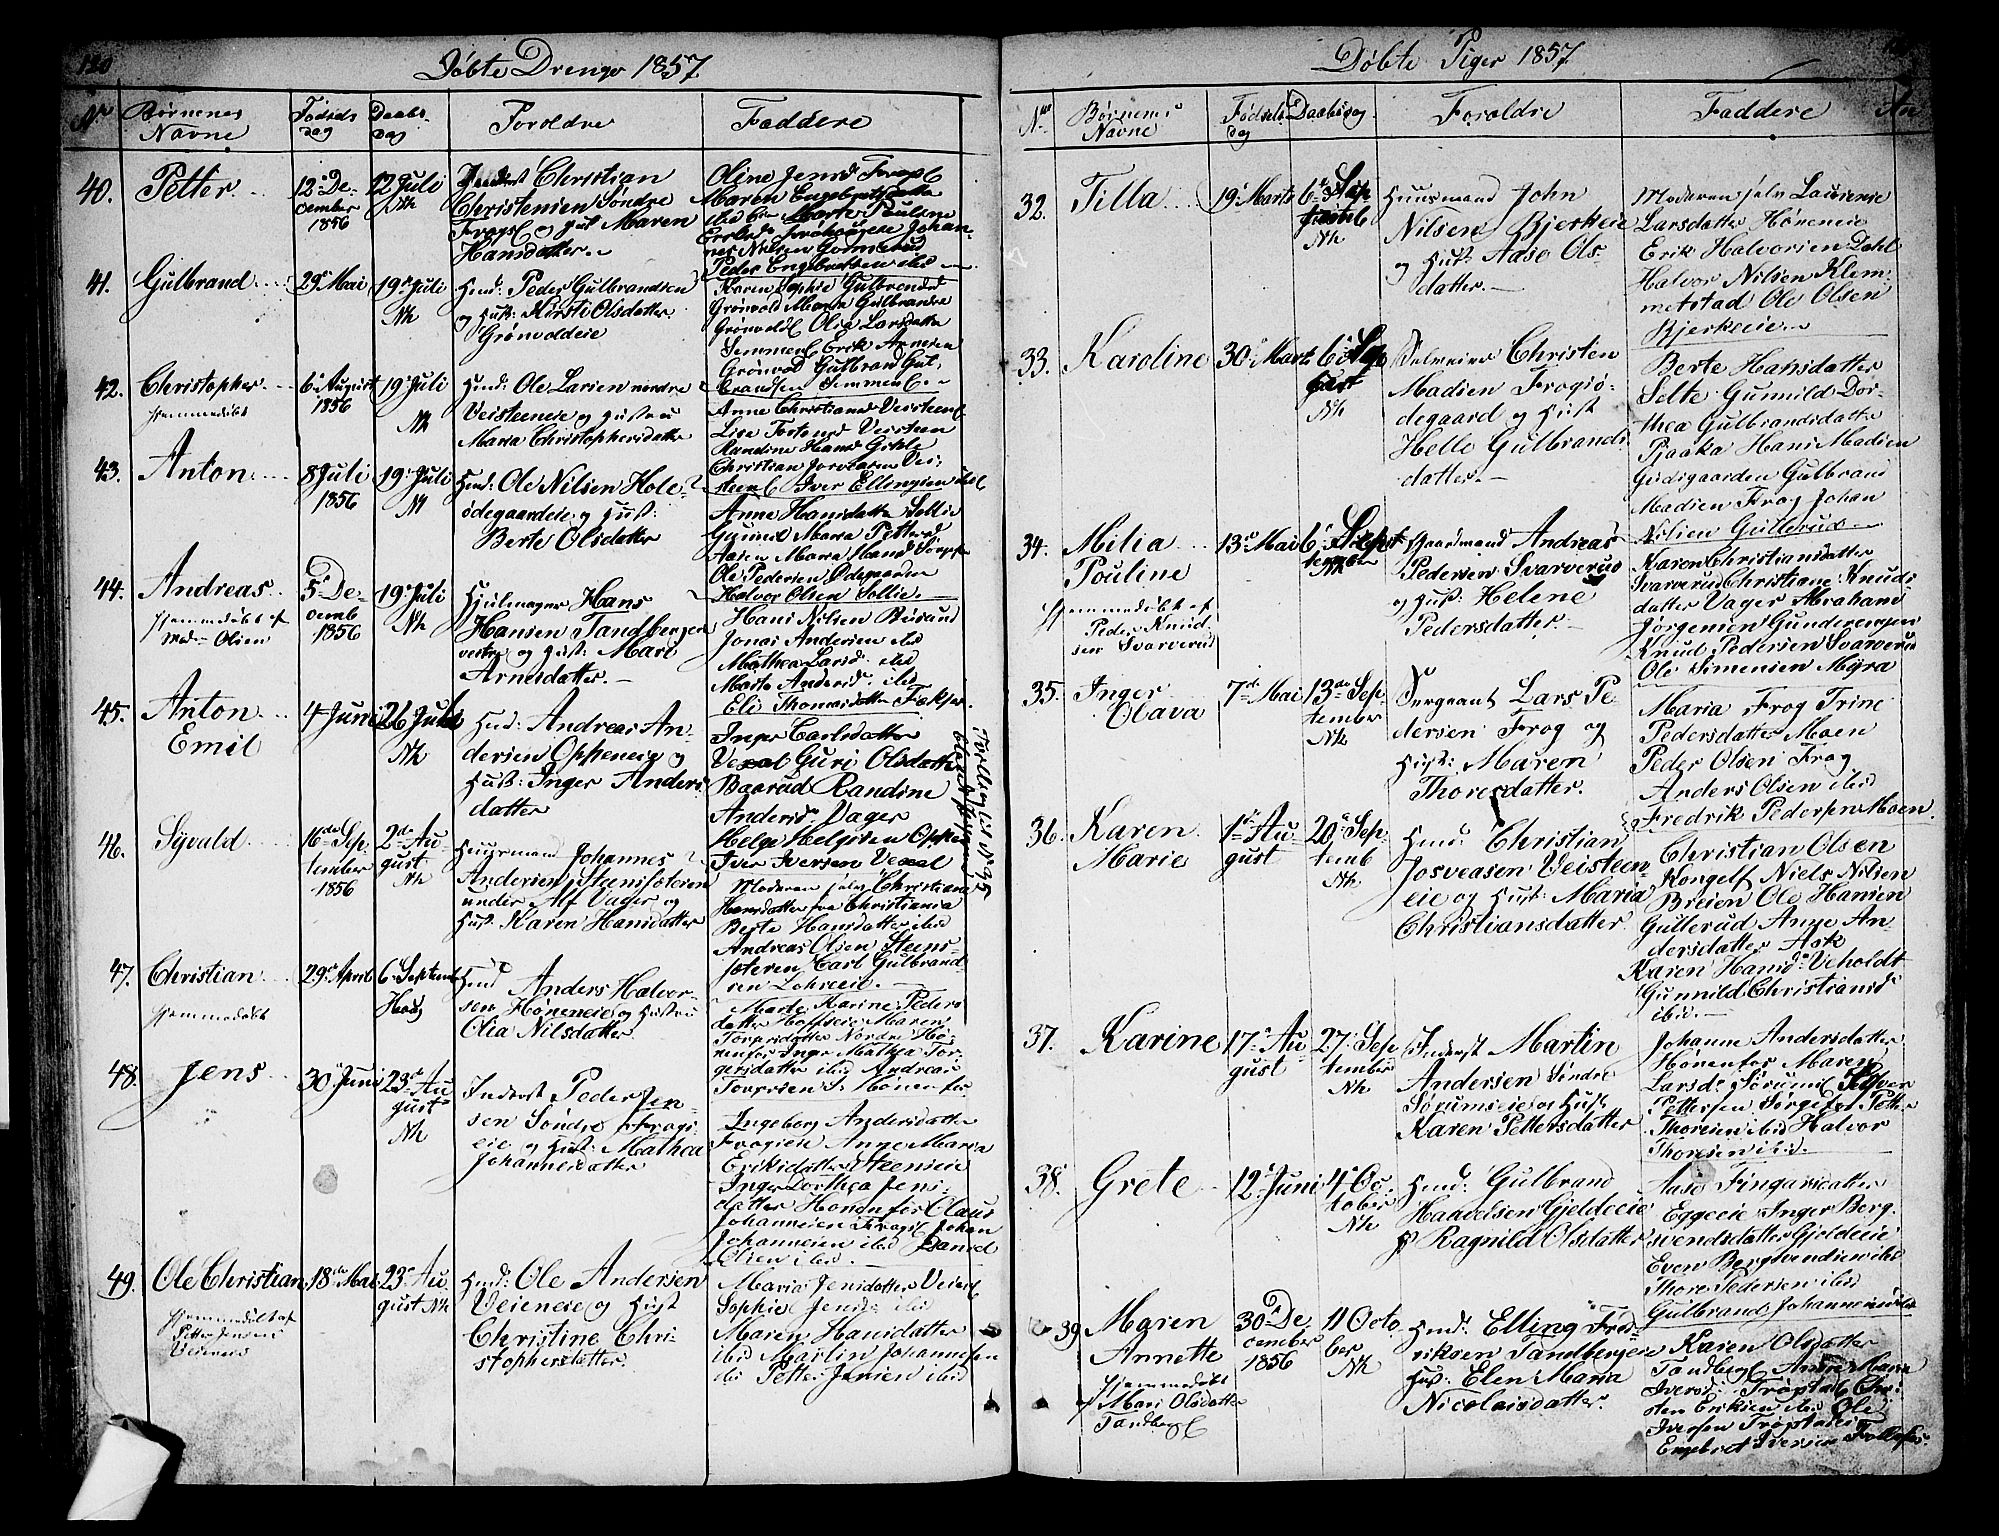 120
Døbte Drenge 1857
No
Børnenes Navne
Fødsels dag
Daabs dag
Foreldre
Faddere
40. Petter
12te De-
cember
1856
12 Juli
Nk
Inderst Christian
Christensen Søndre
Frogs og Hust Maren
Hansdatter.
Oline Jensd
Maren Engebretsdatter
ibid
Peder Engebretsen ibid
41. Gulbrand
29de Mai
19de Juli
Nk
Huusmd: Peder Gulbrandsen
og Hust: Kirsti Olsdatter
Grønvoldeie
Karen Sophie
Grønvold Maria Gulbrands
Grønvold Olia Larsdatter
Semmen Erik Arnesen
Grønvold Gulbran Gul-
brandsen Semmen
42. Christopher
Hjemmedøbt
6te August
1856
19de Juli
Nk
Huusmd: Ole Larsen nordre
Veisteeneie og Hustru
Maria Christophersdatter
Anne Christians Veisteen
Lise Veisteen
Randine Hansd
Christian
43. Anton
8 Juli
1856
19de Juli
Nk
Huusmd: Ole Nilsen Hole-
ødegaardeie og Hust:
Berte Olsdatter
steen Iver Ellingsen ibid
Anne Hansdatter Sollie
Gunild Maria Petters
Aasen Maria Hansd
Ole Pedersen Ødegaarden
Halvor Olsen Sollie
44. Andreas
Hjemmedøbt af
Mad. Olsen
5te De-
cemb
1856
19de Juli
Nk
Hjulmager Hans
Hansen Tandbergeie
vestre og Hust: Mari
Arnesdatter.
Hans Nilsen Busund
Jonas Andersen ibid
Mathea Larsd. ibid
Marte Andersd. ibid
Eli Thomasdatter
45. Anton
Emil
4 Juni
26 Juli
Nk
Huusmd: Andreas An-
dersen Oppeneie og
Hust: Inger Anders
datter
Inger Carlsdatter
Vexal Guri Olsdatter
Baarud Randine
Andersd. Vager
Helge Helgesen Oppen
Iver Iversen Vexal
46. Syvald
16de Sep
tember
1856
2de Au
gust
Nk
Huusmand Johannes
Andersen Steensæteren
under Alf Vager og
Hust: Karen Hansdatter
Moderen selv Christiane
Hansdatter fra Christiania
Berte Hansdatter ibid
Andreas Olsen Steens-
æteren Carl Gulbrand-
sen Lohreeie.
47. Christian
Hjemmedøbt
29de April
6te September
Haug
Huusmd Anders Halvor-
sen Høneneie og Hustru
Olia Nilsdatter.
Marte Karine Peders
datter Hoffseie Maren
Torgersdatter Nordre Hø-
nenfos Inger Mathea Tor-
gersdatter ibid Andreas
Torgersen S. Hønenfos
48. Jens
30 Juni
23de Au
gust
Nk
Inderst Peder Jen-
sen Søndre Frogs-
eie og Hust: Mathea
Johannesdatter
Ingeborg Andersdatter
Frogseie Anne Maria
Eriksdatter Steenseie
Inger Dorthea Jens-
datter Hønenfos Claus
Johannesen Frogs Johan
Johannesen ibid Daniel
Olsen ibid.
49. Ole Christian
Hjemmedøbt af
Petter Jensen
Veieneie
18de Mai
23de Au
gust Nk
Huusmd: Ole Andersen
Veieneie og Hust
Christine Chri-
stophersdatter.
Maria Jensdatter Veien
Sophie Jensd. ibid
Maren Hansdatter
ibid Martin Johannesen
ibi Petter Jensen ibid
Døbte Piger 1857
No
Børnenes Navne
Fødsels dag
Daabsdag
Foreldre
Faddere
An
32. Tilla
19de Marts
6te Sep
Nk
Huusmand John
Nilsen Bjerkeie
og Hust: Aase Ols-
datter.
Moderen selv Laurense
Larsdatter Høneneie
Erik Halvorsen Dahl
Halvor Nilsen Klem-
metstad Ole Olsen
Bjerkeeie
33. Karoline
30 Marts
6te Sep
Nk
Selveier Christen
Madsen Frogsø-
degaard og Hust
Helle Gulbrands
datter.
Berte Hansdatter
Selte Gunnild Dor-
thea Gulbrandsdatter
Pjaaka Hans Madsen
Gulbrand
Madsen Frog Johan
Nilsen Gullerud
34. Milia
Pouline
Hjemmedøbt af
Peder Knud-
sen Svarverud
13de Mai
6te Sept
tember
Nk
Gaardmand Andreas
Pedersen Svarverud
og Hust: Helene
Pedersdatter.
Karen Christiansdatter
Svarverud Christiane Knuds-
datter Vager Abraham
Jørgensen Gundersengen
Knud Pedersen Svarverud
Ole Simensen Myra
35. Inger
Olava
7de Mai
13de Sep
tember
Nk
Sergeant Lars Pe
dersen Frog og
Hust: Maren
Thoresdatter.
Maria Frog Trine
Pedersdatter Moen
Peder Olsen Frog
Anders Olsen ibid
Fredrik Pedersen Moen.
36. Karen
Marie
1ste Au
gust
20de Sep
temb
Nk
Huusmd: Christian
Josveasen Veisteen
eie og Hust: Maria
Christiansdatter
Christian Olsen
Kongelf Niels Nilsen
Breien Ole Hansen
Gullerud Anne An
dersdatter Ask
Karen Hansd. Veholdt
Gunnild Christiansd
ibid.
37. Karine
17de Au
gust
27de Sep
tember
Nk
Inderst Martin
Andersen Søndre
Sørumseie og Hust
Karen Pettersdatter
Johanne Andersdatter
Hønenfos Maren
Larsd. Sørum
Pettersen Sørgefos Petter
Thoresen ibid Halvor
Thoresen ibid.
38. Grete
12te Juni
4de Oc
tober
Nk
Huusmd: Gulbrand
Haavelsen Gjeldeeie
og Ragnild Olsdatter
Aase Fingarsdatter
Eggeeie Inger Berg-
svendsdatter Gjeldeeie
Even Bergsvendsen ibid
Thore Pedersen ibid
Gulbrand Johannesen ibid
39. Maren
Annette
Hjemmedøbt
af Mari Olsdatter
Tandberg
30te De-
cember
1856
11 Octo
ber
Nk
Huusmd: Elling Fred-
riksen Tandbergeie
Hust: Elen Maria
Nicolaisdatter.
Karen Olsdatter
Tandberg Anne Maria
Iversd: Trøgstad Chri-
sten Eriksen ibid Ole
Iversen Trøgstadeie
Engebret Iversen